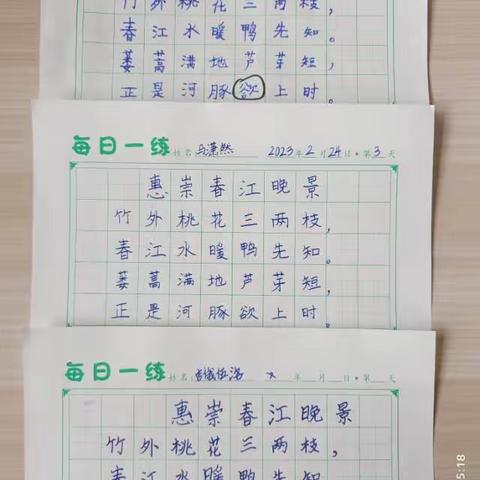 竹外桃花三两枝,
春江水暖鸭先知。
蒌蒿满地芦芽短,
正是河豚欲上时。
每日一练 姓名 马潇然 2023年2月24日·第3天
惠崇春江晚景
竹外桃花三两枝,
春江水暖鸭先知。
蒌蒿满地芦芽短,
正是河豚欲上时。
每日一练 姓名: 年 月 日·第 天
惠崇春江晚景
竹外桃花三两枝,
春江水暖鸭先知
5:18